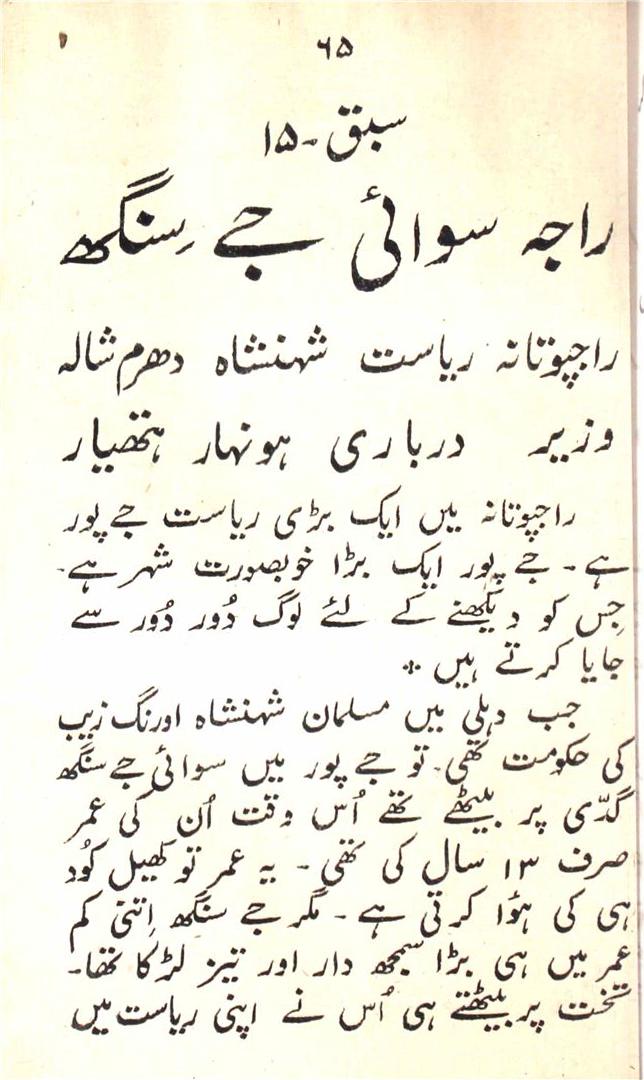 ۶۵
سبق - ۱۵
راجہ سوائی جے سِنگھ
راجپوتانہ ریاست شہنشاہ دھرم شالہ
وزیر درباری ہونہار ہتھیار
راجپوتانہ میں ایک بڑی ریاست جے پور
ہے - جے پور ایک بڑا خوبصورت شہر ہے -
جِس کو دیکھنے کے لئے لوگ دُور دُور سے
جایا کرتے ہیں *
جب دہلی میں مسلمان شہنشاہ اورنگ زیب
کی حکومت تھی - تو جے پور میں سوائی جے سنگھ
گدّی پر بیٹھے تھے اُس وقت اُن کی عمر
صرف ۱۳ سال کی تھی - یہ عمر تو کھیل کُود
ہی کی ہؤا کرتی ہے - مگر جے سنگھ اِتنی کم
عمر میں ہی بڑا سمجھ دار اور تیز لڑکا تھا -
تخت پر بیٹھتے ہی اُس نے اپنی ریاست میں